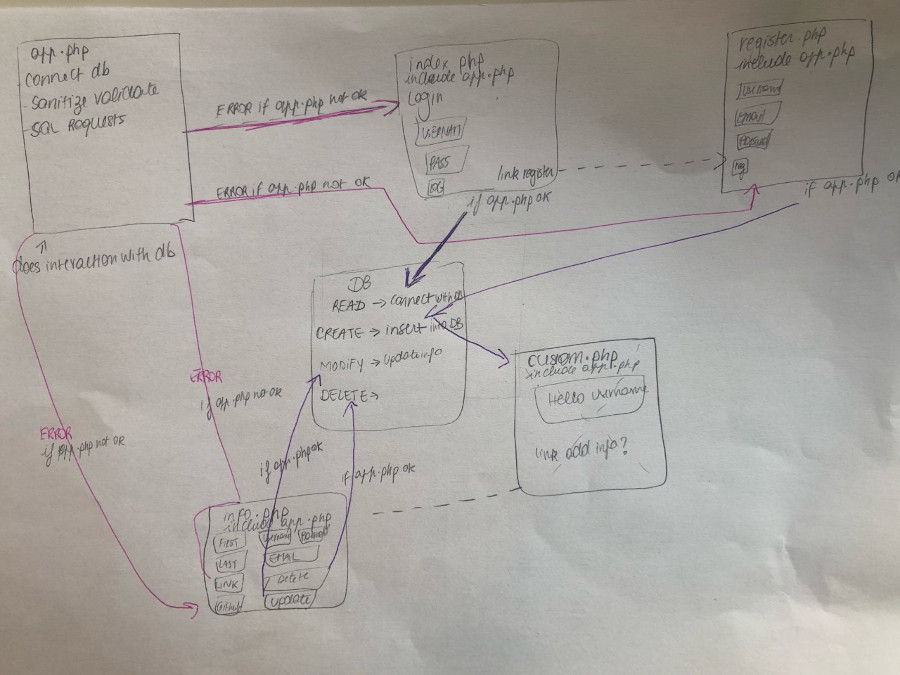 app.php
connect db
- sanitize validate
- SQL REQUESTS
does interaction with db
ERROR if app.php not ok
ERROR if app.php not ok
index php
include app.php
login
PASS
LOG
link register
if app.php ok
register php
include app.php
Username
Email
Password
Reg
if app.php ok
DB
READ → connect with DB
CREATE → insert into DB
MODIFY → update info
DELETE →
custom.php
include app.php
Hello username
link add info?
ERROR
if app.php not ok
ERROR
if app.php not ok
if app.php ok
if app.php ok
info.php
include app.php
FIRST
Username
Password
LAST
EMAIL
LINK
Delete
Github
update